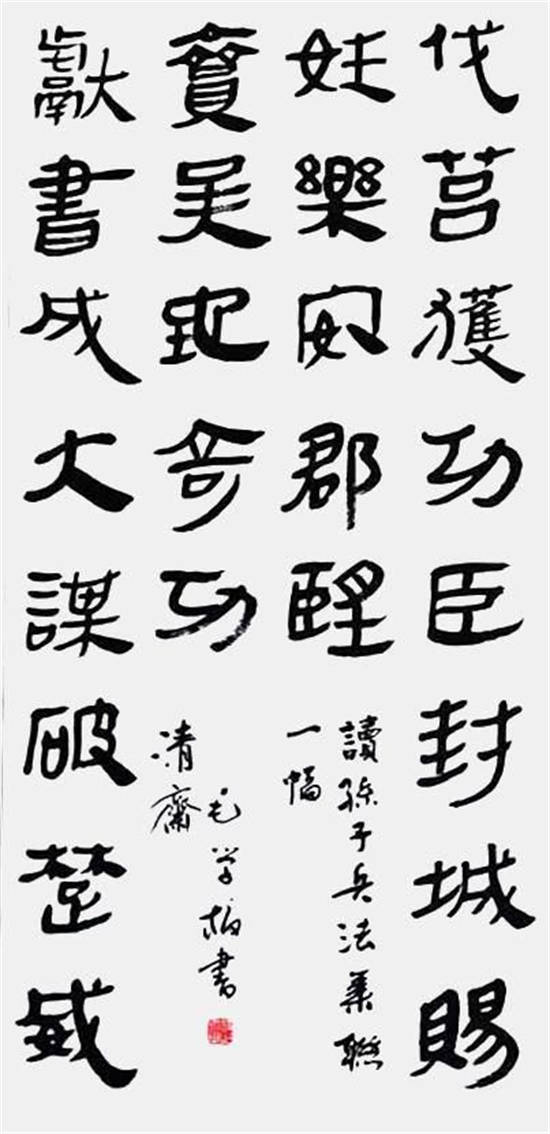 伐莒獲功臣封城賜
姓樂安郡朢
獻書成大謀破楚威
賓吳地奇功
讀孫子兵法集聯
一幅
毛学柏書
清齋